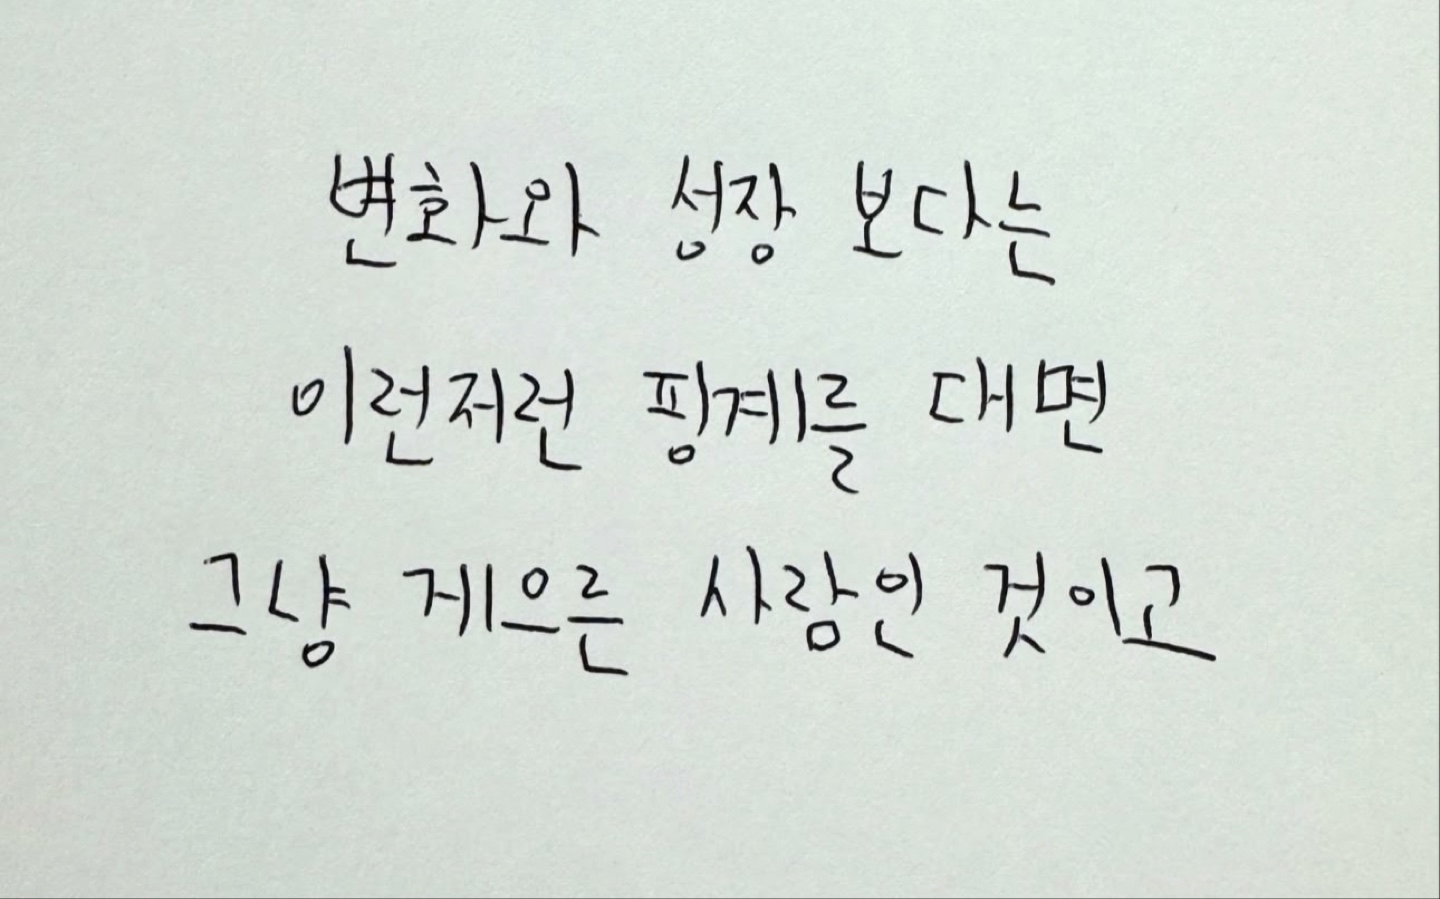 변화와 성장 보다는
이런저런 핑계를 대면
그냥 게으른 사람인 것이고